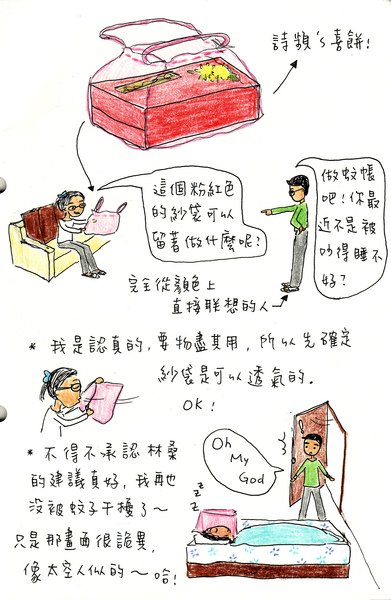 詩頻's喜餅!
這個粉紅色
的紗袋可以
留著做什麼呢?
做蚊帳
吧!你最
近不是被
吵得睡不
好?
完全從顏色上
直接联想的人
* 我是認真的,要物盡其用,所以先確定
紗袋是可以透氣的。
OK!
* 不得不承認林桑
的建議真好,我再也
沒被蚊子干擾了~
只是那畫面很詭異,
像太空人似的~哈!
Oh
My
God
z
z
z